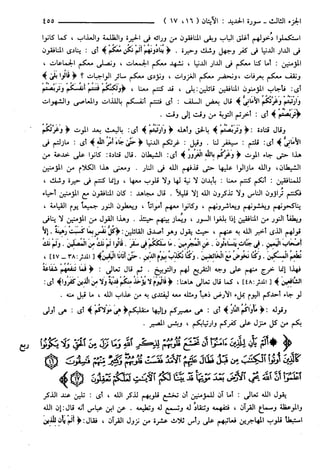 الجزء الثالث - سورة الحديد : الآيتان (١٦ ، ١٧) ٤٥٥
استكملوا دخولهم أغلق الباب وبقي المنافقون من ورائه في الحيرة والظلمة والعذاب ، كما كانوا
في الدار الدنيا في كفر وجهل وشك وحيرة . ﴿ ينادونهم ألم نكن معكم ﴾ أي : ينادي المنافقون
المؤمنين : أما كنا معكم في الدار الدنيا ، نشهد معكم الجمعات ، ونصلي معكم الجماعات ،
ونقف معكم بعرفات ، ونحضر معكم الغزوات ، ونؤدي معكم سائر الواجبات ؟ ﴿ قالوا بلى ﴾
أي : فأجاب المؤمنون المنافقين قائلين : بلى ، قد كنتم معنا ، ﴿ ولكنكم فتنتم أنفسكم وتربصتم
وارتبتم وغرتكم الأماني ﴾ قال بعض السلف : أي فتنتم أنفسكم باللذات والمعاصي والشهوات
﴿ وتربصتم ﴾ أي : أخرتم التوبة من وقت إلى وقت .
وقال قتادة : ﴿ وتربصتم ﴾ بالحق وأهله ﴿ وارتبتم ﴾ أي : بالبعث بعد الموت ﴿ وغرتكم
الأماني ﴾ أي : قلتم : سيغفر لنا . وقيل : غرتكم الدنيا ﴿ حتى جاء أمر الله ﴾ أي : مازلتم في
هذا حتى جاء الموت ﴿ وغركم بالله الغرور ﴾ أي : الشيطان . قال قتادة : كانوا على خدعة من
الشيطان ، والله مازالوا عليها حتى قذفهم الله في النار . ومعنى هذا الكلام من المؤمنين
للمنافقين : أنكم كنتم معنا : بأبدان لا نية لها ولا قلوب معها ، وإنما كنتم في حيرة وشك ،
فكنتم تراؤون الناس ولا تذكرون الله إلا قليلاً . قال مجاهد : كان المنافقون مع المؤمنين أحياء
يناكحونهم ويغشونهم ويعاشرونهم ، وكانوا معهم أمواتاً ، ويعطون النور جميعاً يوم القيامة ،
ويطفأ النور من المنافقين إذا بلغوا السور ، ويماز بينهم حينئذ . وهذا القول من المؤمنين لا ينافي
قولهم الذي أخبر الله به عنهم ، حيث يقول وهو أصدق القائلين : ﴿ كل نفس بما كسبت رهينة . إلا
أصحاب اليمين . في جنات يتساءلون . عن المجرمين . ما سلككم في سقر . قالوا لم نك من المصلين . ولم نك
نطعم المسكين . وكنا نخوض مع الخائضين . وكنا نكذب بيوم الدين . حتى أتانا اليقين ﴾ [ المدثر : ٣٨ - ٤٧ ] ،
فهذا إنما خرج منهم على وجه التقريع لهم والتوبيخ . ثم قال تعالى : ﴿ فما تنفعهم شفاعة
الشافعين ﴾ [ المدثر : ٤٨ ] ، كما قال تعالى هاهنا : ﴿ فاليوم لا يؤخذ منكم فدية ولا من الذين كفروا ﴾ أي :
لو جاء أحدكم اليوم بملء الأرض ذهباً ومثله معه ليفتدي به من عذاب الله ، ما قبل منه .
وقوله : ﴿ مأواكم النار ﴾ أي : هي مصيركم وإليها منقلبكم ﴿ هي مولاكم ﴾ أي : هي أولى
بكم من كل منزل على كفركم وارتيابكم ، وبئس المصير .
﴿ ألم يأن للذين آمنوا أن تخشع قلوبهم لذكر الله وما نزل من الحق ولا يكونوا
كالذين أوتوا الكتاب من قبل فطال عليهم الأمد فقست قلوبهم وكثير منهم فاسقون ﴿١٦﴾
اعلموا أن الله يحيي الأرض بعد موتها قد بينا لكم الآيات لعلكم تعقلون ﴿١٧﴾
يقول الله تعالى : أما آن للمؤمنين أن تخشع قلوبهم لذكر الله ، أي : تلين عند الذكر
والموعظة وسماع القرآن ، فتفهمه وتنقاد له وتسمع له وتطيعه . عن ابن عباس أنه قال : إن الله
استبطأ قلوب المهاجرين فعاتبهم على رأس ثلاث عشرة من نزول القرآن ، فقال : ﴿ ألم يأن للذين